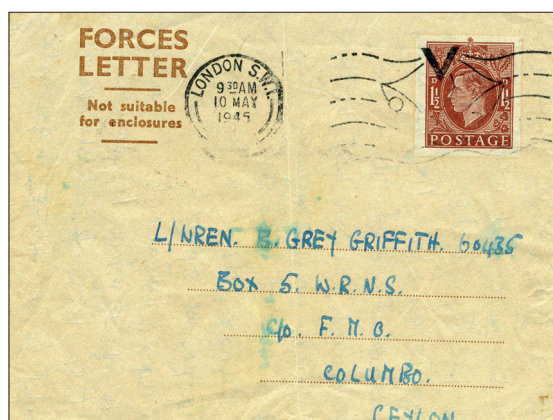 FORCES
LETTER
Not suitable
for enclosures
LONDON S.W.1.
9 30AM
10 MAY
1945
V
1½ 1½
POSTAGE
L/WREN. B. GREY GRIFFITH. 60435
BOX 5. W.R.N.S.
c/o. F. M. O.
COLUMBO.
CEYLON